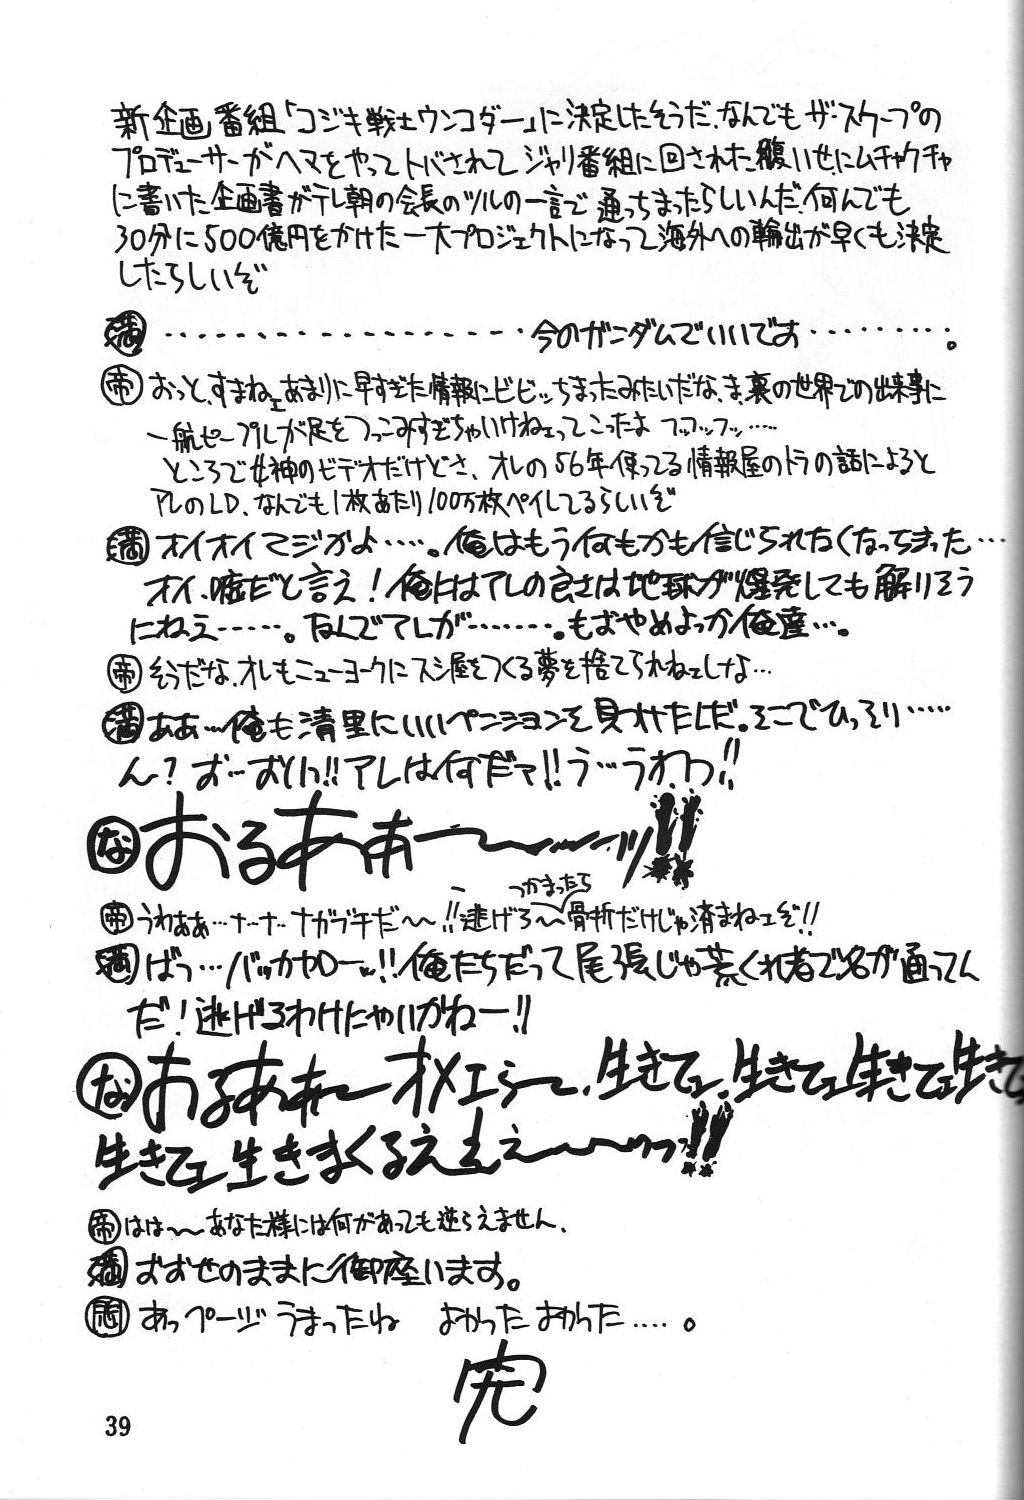 新企画番組「コジキ戦士ウンコダー」に決定したそうだ、なんでもザ・スクープの
プロデューサーがヘマをやってトバされてジャリ番組に回された腹いせにムチャクチャ
に書いた企画書がテレ朝の会長のツルの一言で通っちまったらしいんだ、何んでも
30分に500億円をかけた一大プロジェクトになって海外への輸出が早くも決定
したらしいぞ
満 ・・・・・・・・・・・・・・・・・今のガンダムでいいです・・・・・・・・。
帝 おっと、すまねェあまりに早すぎた情報にビビッちまったみたいだな、ま、裏の世界での出来事に
一般ピープルが足をつっこみすぎちゃいけねェってこったよ フッフッフッ・・・・・
ところで女神のビデオだけどさ、オレの56年使ってる情報屋のトラの話によると
アレのLD、なんでも1枚あたり100万枚ペイしてるらしいぞ
満 オイオイマジかよ・・・・・。俺はもう何もかも信じられなくなっちまった・・・
オイ、嘘だと言え！俺にはアレの良さは地球が爆発しても解りそう
にねえ・・・・・・。なんでアレが・・・・・・・。もおやめよっか俺達・・・。
帝 そうだな、オレもニューヨークにスシ屋をつくる夢を捨てられねェしなよ・・・
満 ああ・・・俺も清里にいいペンションを見つけたしだ。そこでひっそり・・・・・
ん？ おーおいっ!! アレは何だァ!! う・・・うわっ!!
な おるあぁぁ〜〜〜ッ!!
帝 うわぁぁ・・・ナ・・ナ・・ナガブチだ〜〜!! 逃げろ〜〜つかまったら骨折だけじゃ済まねェぞ!!
満 ばっ・・・バッカヤローッ!! 俺たちだって尾張じゃ荒くれ者で名が通ってん
だ！逃げるわけにゃいかねー!!
な おるああぁ〜オメェら〜、生きてェ、生きてェ生きてェ生きて
生きてェ生きまくるえぇぇ〜〜〜ッっっ!!
帝 はは〜〜あなた様には何があっても逆らえません、
満 おおせのままに御座います。
あっページうまったね よかったよかった・・・・。
完
39